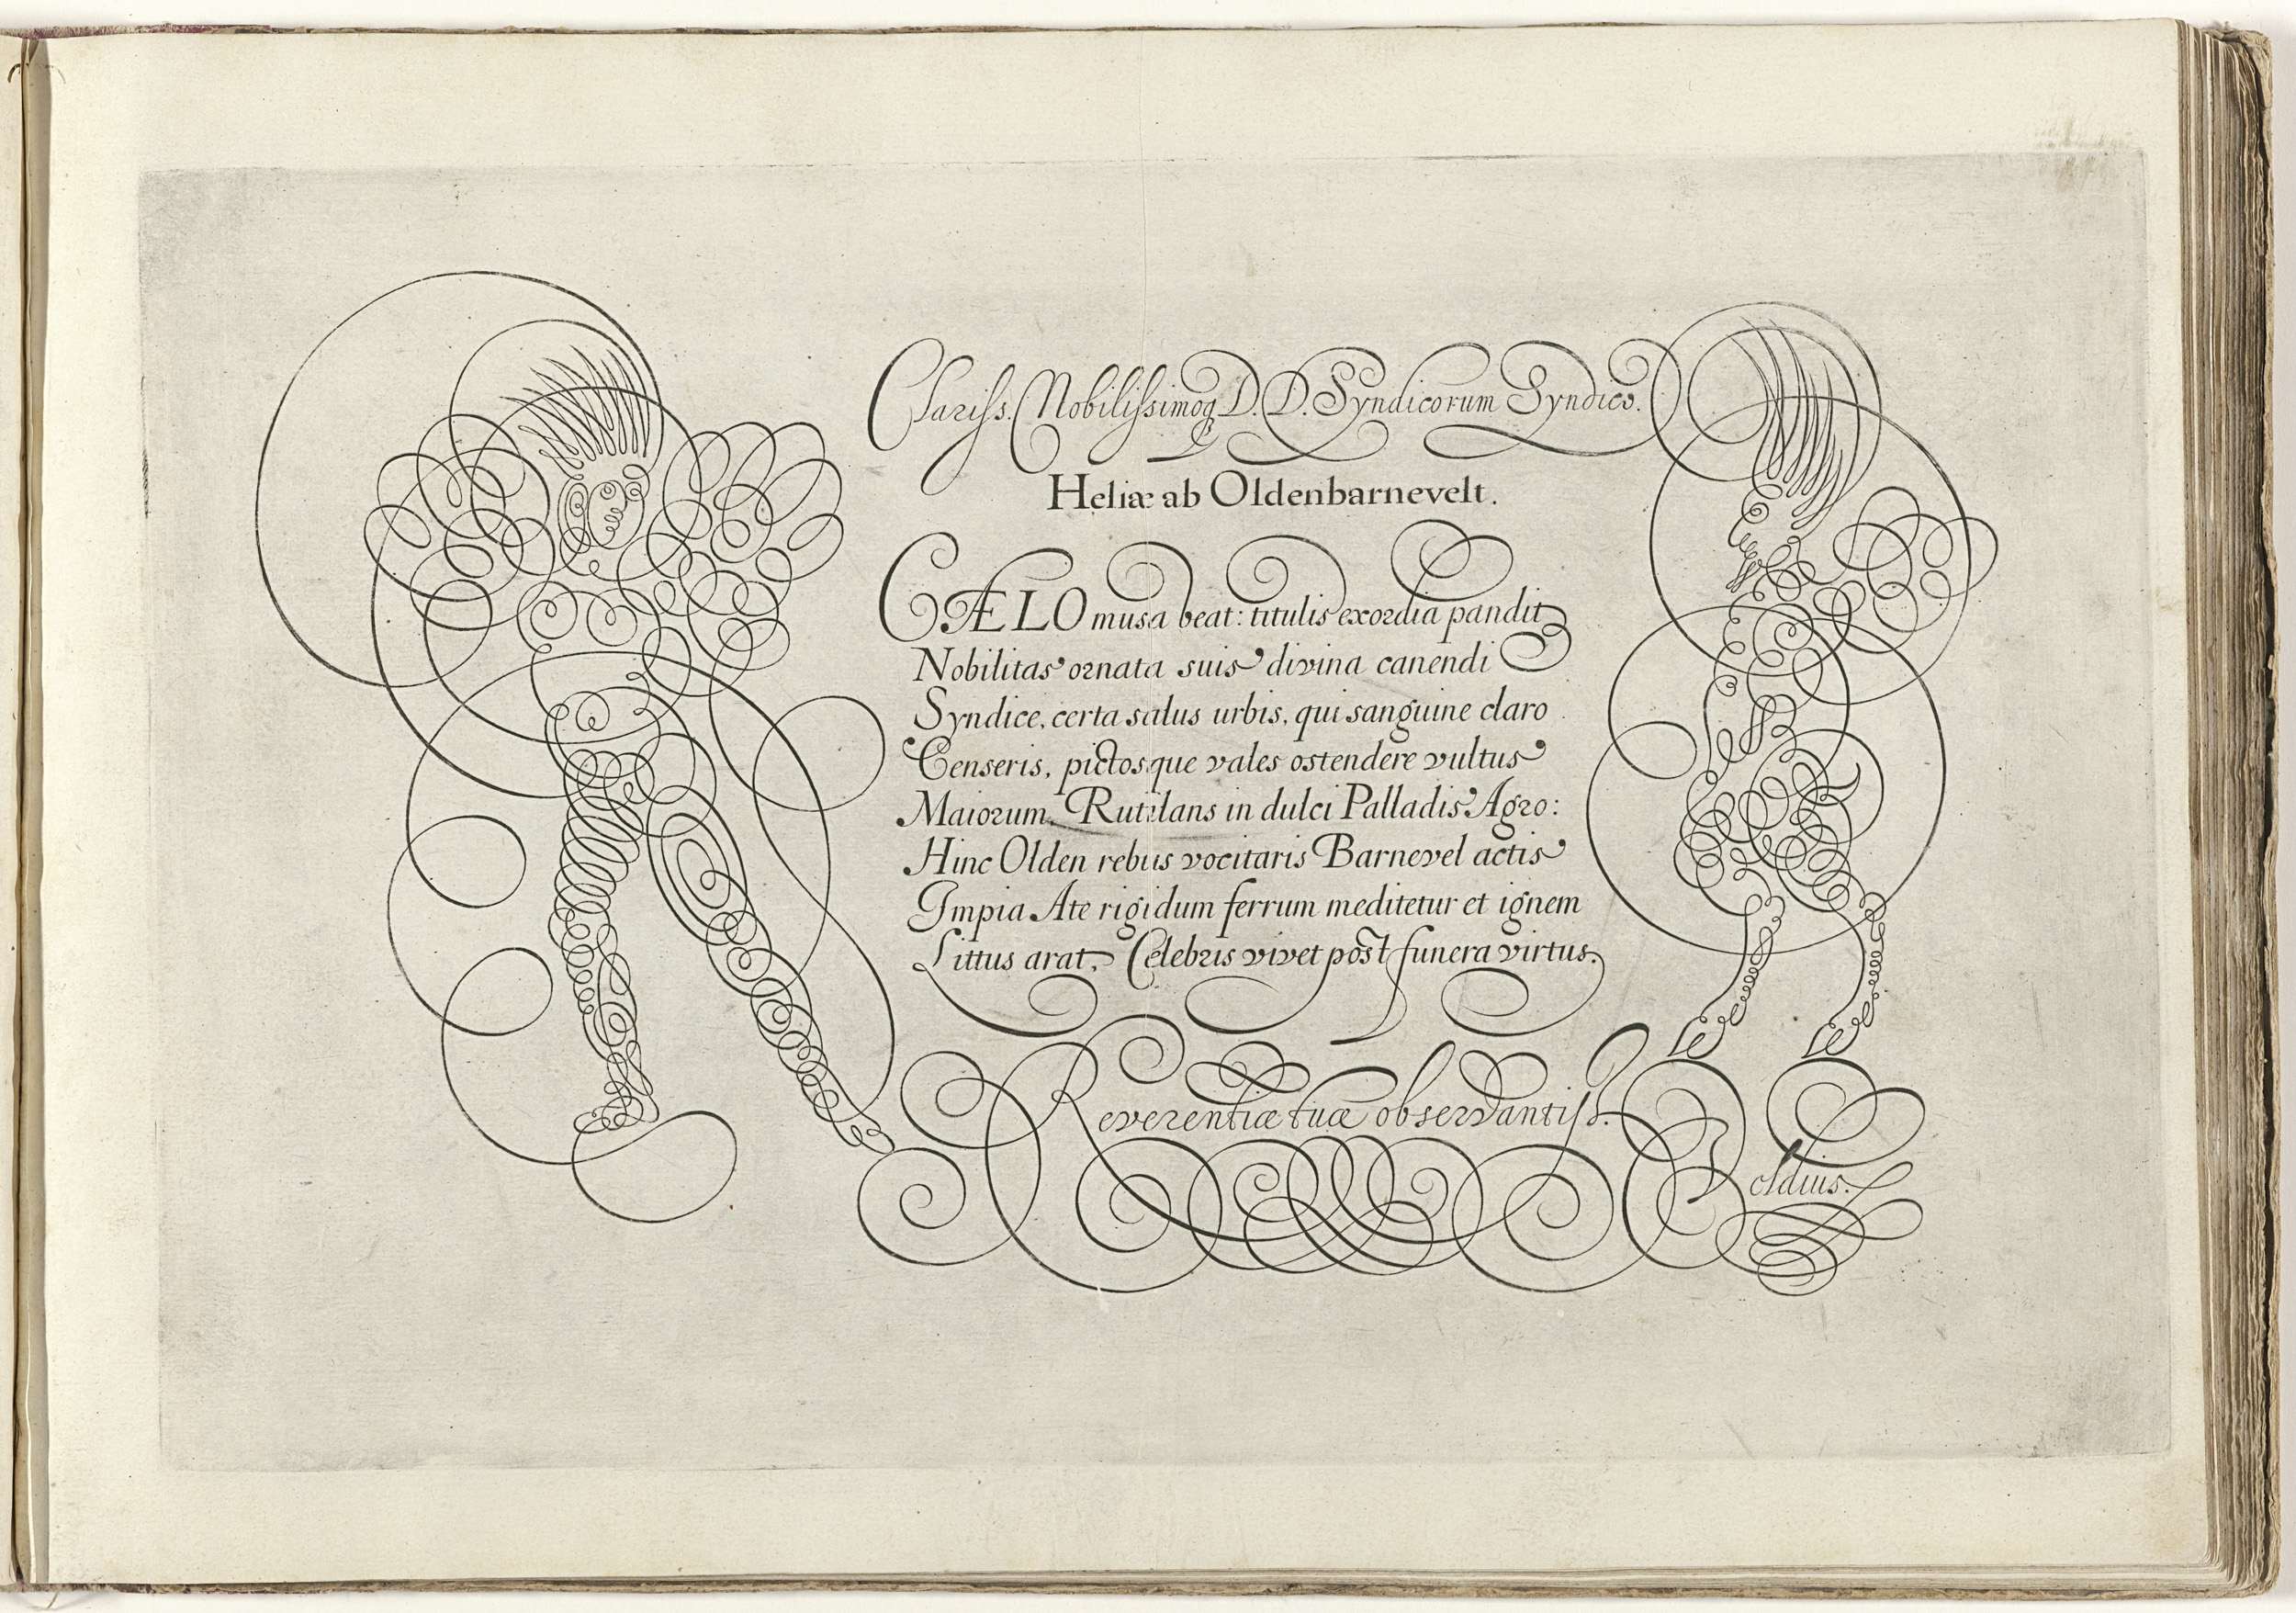 Clariss. Nobilissimoq D. D. Syndicorum Syndico.
Heliæ ab Oldenbarnevelt.
CÆLO musa beat: titulis exordia pandit
Nobilitas ornata suis divina canendi
Syndice, certa salus urbis, qui sanguine claro
Censeris, pictosque vales ostendere vultus
Maiorum, Rutilans in dulci Palladis Agro:
Hinc Olden rebus vocitaris Barnevel actis
Impia Ate rigidum ferrum meditetur et ignem
Littus arat, Celebris vivet post funera virtus.
Reverentiæ tuæ observantiss.